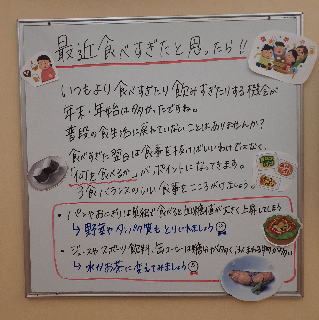 最近食べすぎたと思ったら!!
いつもより食べすぎたり飲みすぎたりする機会が
年末・年始は多かったですね。
普段の食生活に戻れていないことはありませんか?
食べすぎた翌日は食事を抜けばいいわけではなく、
「何を食べるか」がポイントになってきます。
3食バランスのいい食事をこころがけましょう。
・パンやおにぎりは単品で食べると血糖値が大きく上昇してしまう
→野菜やタンパク質もとりいれましょう
・ジュースやスポーツ飲料、缶コーヒーは糖分が多く含まれる
→水かお茶に変えてみましょう